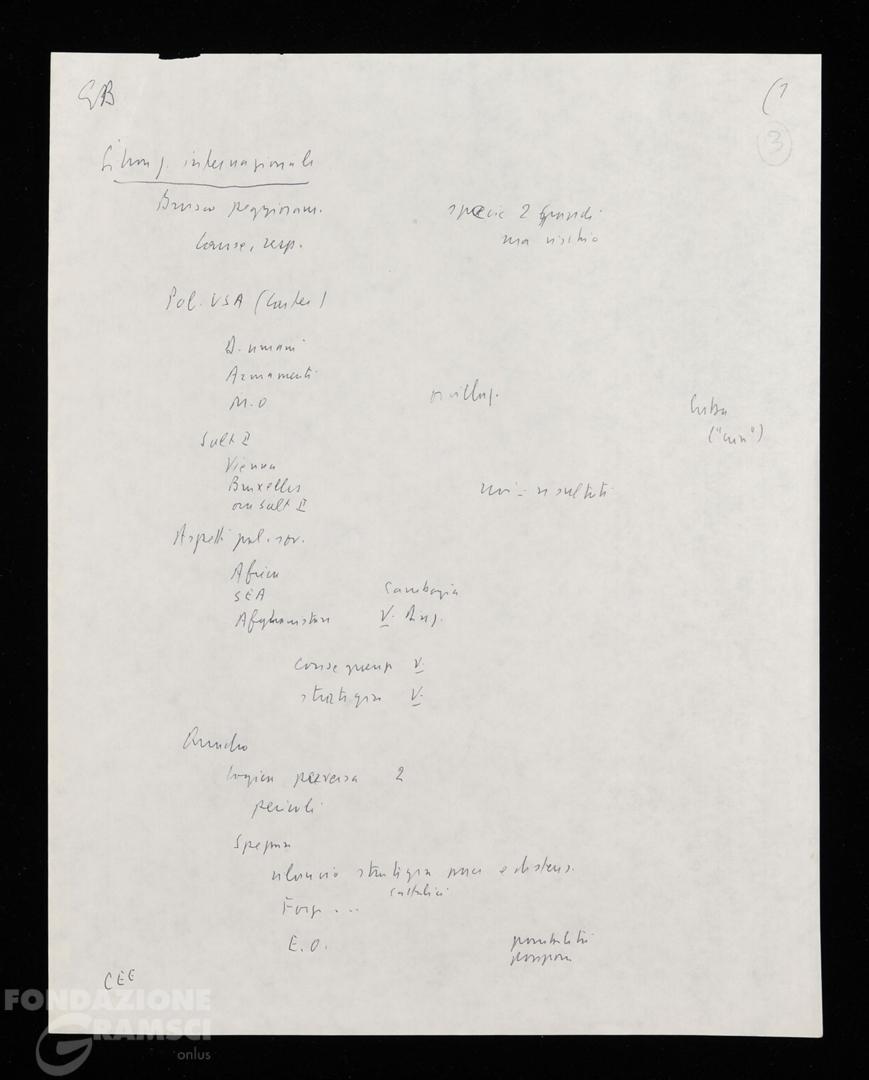 GB
(1
3
Situaz. internazionale
Brusco peggioram.
specie 2 grandi
ma rischio
Cause, resp.
Pol. USA (Carter)
D. umani
Armamenti
M.O
Cuba
("crisi")
Salt II
Vienna
Bruxelles
ora Salt II
risultati
Aspetti pol. sov.
Africa
SEA
Cambogia
Afghanistan
V. Ding.
conseguenze V.
strategia V.
Quadro
Logica perversa 2
pericoli
Spezzarla
rilancio strategia pace e distens.
cattolici
Forze ...
E.O.
possibilità
CEE
FONDAZIONE
GRAMSCI
onlus